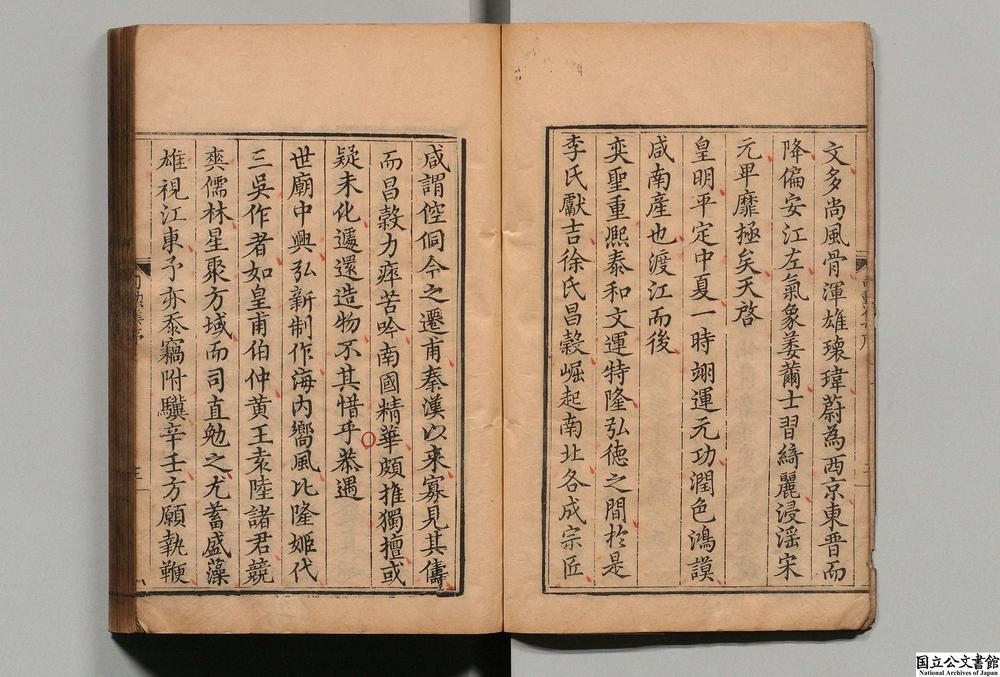 文多尚風骨渾雄瓌瑋蔚為西京東晉而
降偏安江左氣象萎薾士習綺麗浸淫宋
元卑靡極矣天啓
皇明平定中夏一時翊運元功潤色鴻謨
咸南産也渡江而後
奕聖重熙泰和文運特隆弘德之間於是
李氏獻吉徐氏昌縠崛起南北各成宗匠
咸謂倥侗今之遷甫秦漢以來寡見其儔
而昌縠力瘁苦吟南國精華頗推獨擅或
疑未化遽還造物不其惜乎恭遇
世廟中興弘新制作海内嚮風比隆姬代
三吳作者如皇甫伯仲黄王袁陸諸君競
爽儒林星聚方域而司直勉之尤蓄盛藻
雄視江東予亦忝竊附驥辛壬方願執鞭
国立公文書館
National Archives of Japan